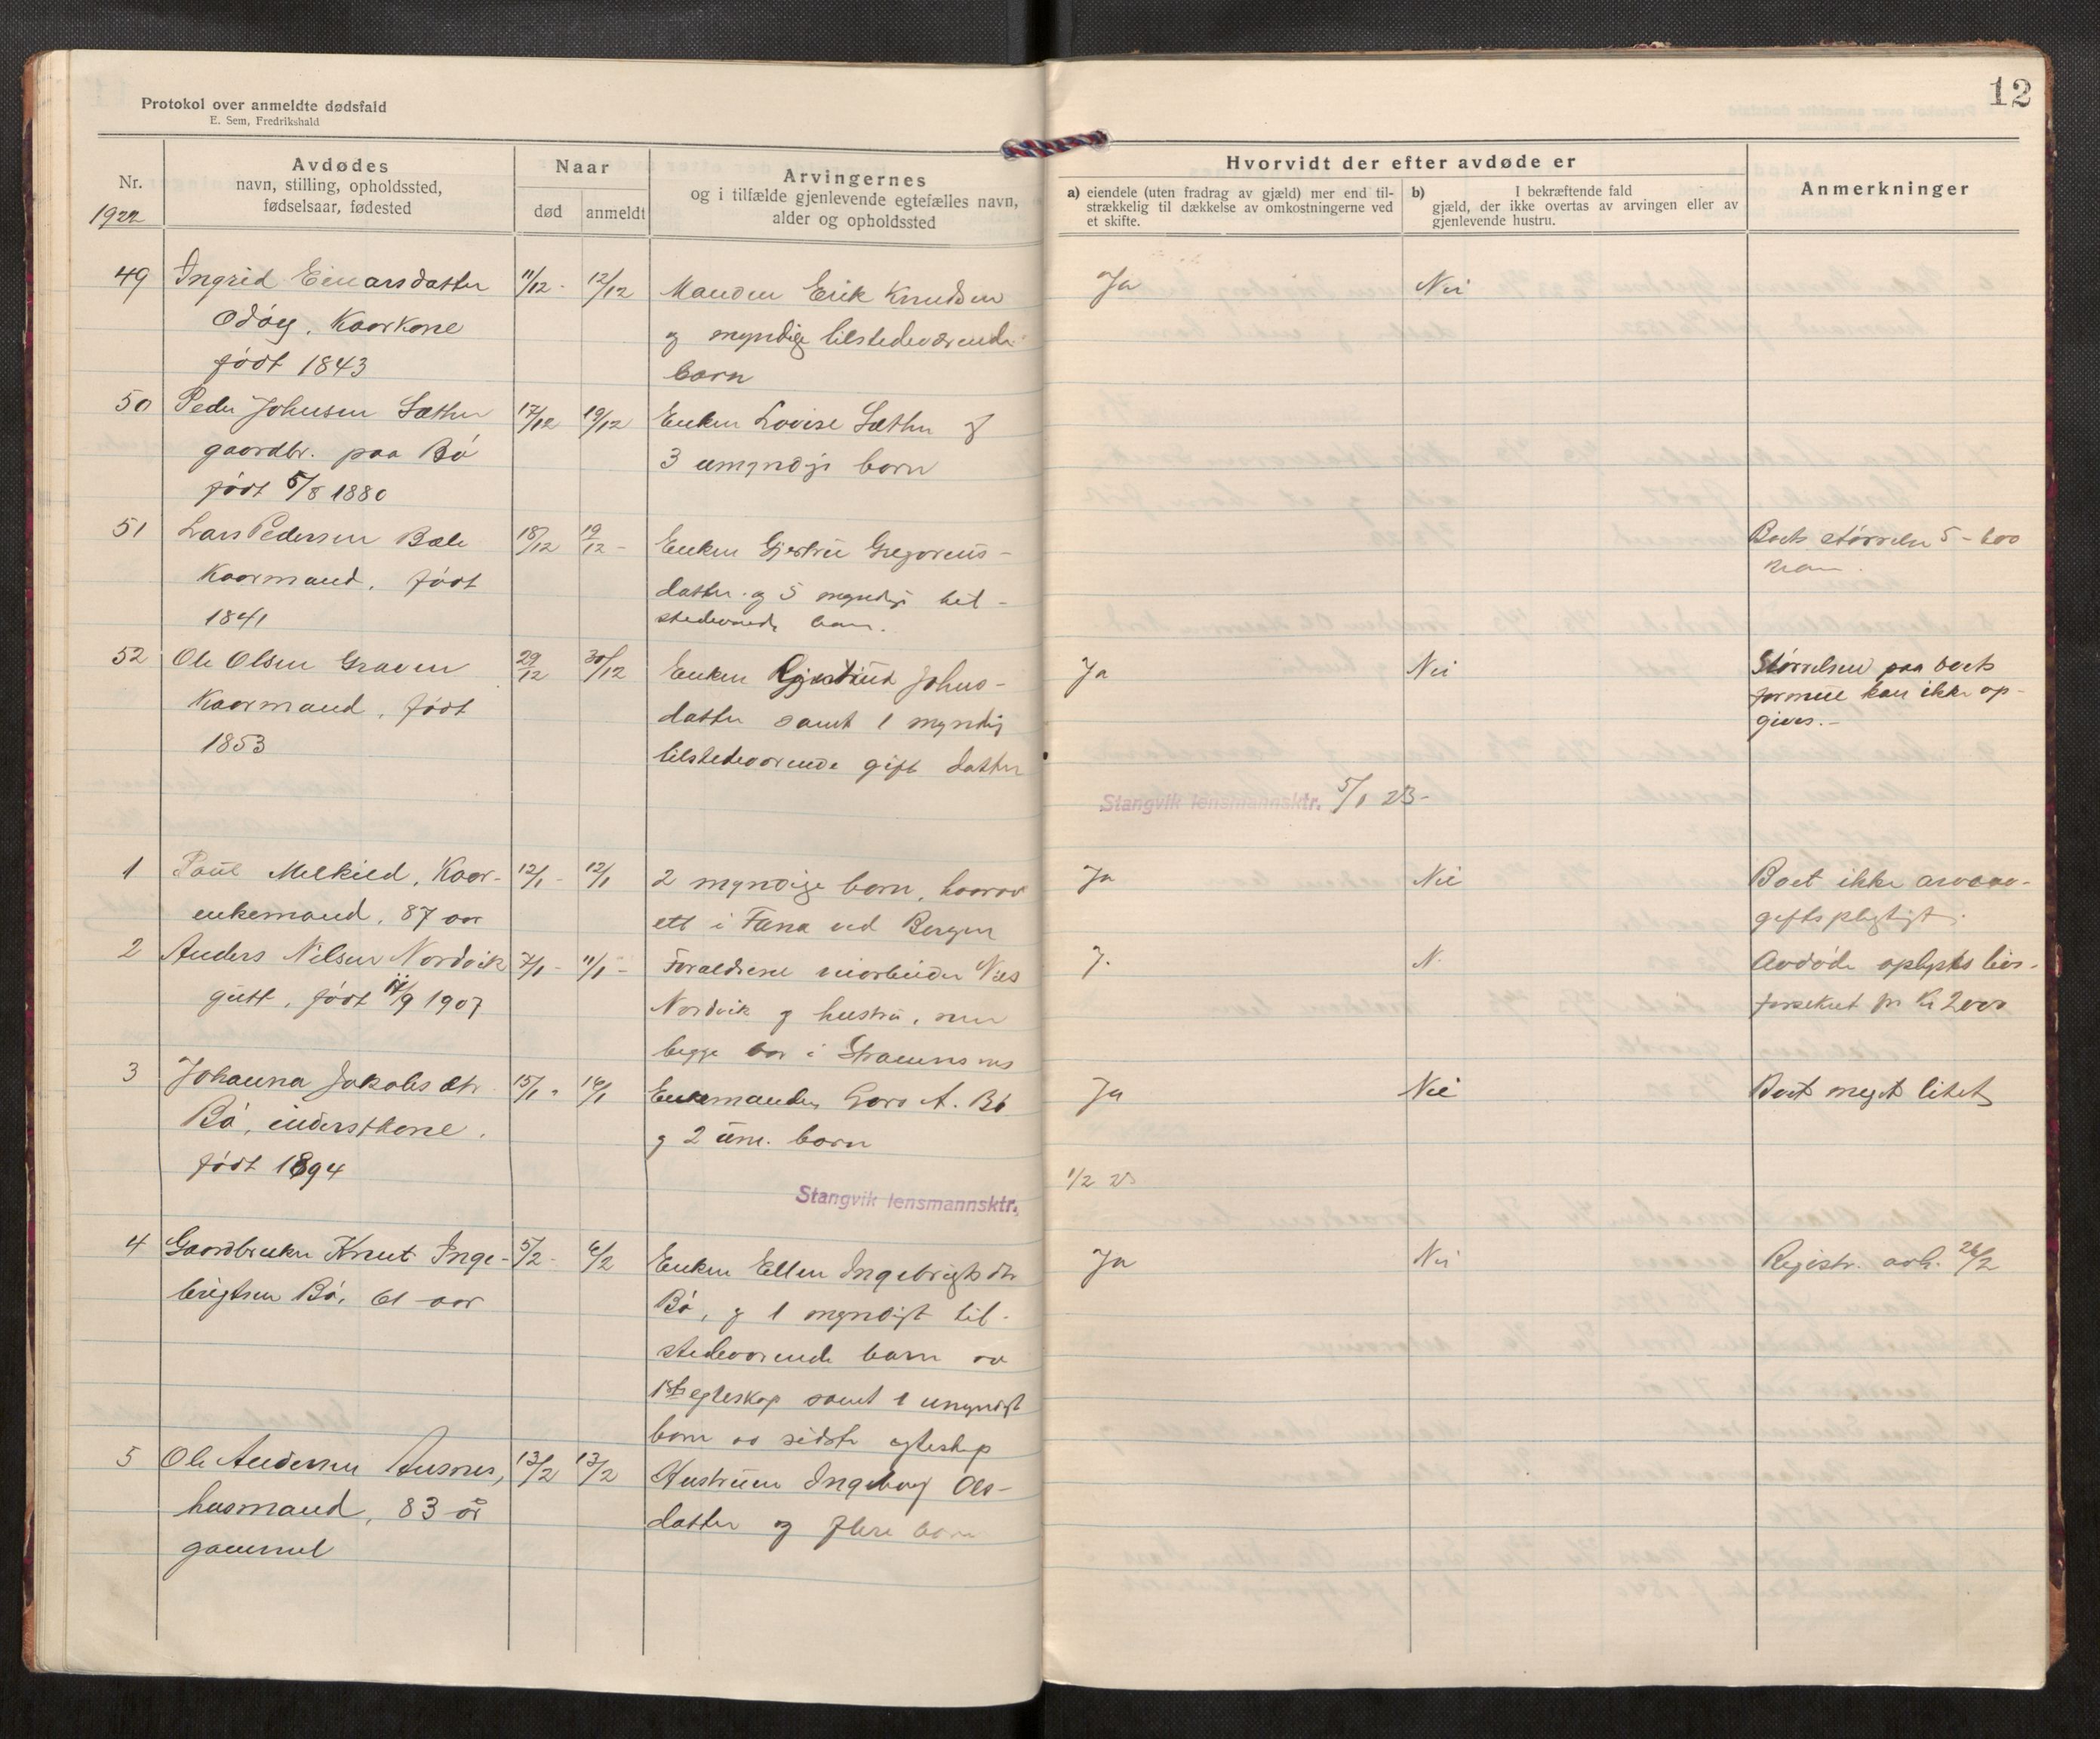 Protokol over anmeldte dødsfald
E. Sem, Fredrikshald
12
Nr.
1922
Avdødes
navn, stilling, opholdssted,
fødselsaar, fødested
Naar
død
anmeldt
Arvingernes
og i tilfælde gjenlevende egtefælles navn,
alder og opholdssted
Hvorvidt der efter avdøde er
a) eiendele (uten fradrag av gjæld) mer end til-
strækkelig til dækkelse av omkostningerne ved
et skifte.
b) I bekræftende fald
gjæld, der ikke overtas av arvingen eller av
gjenlevende hustru.
Anmerkninger
49 Ingrid Einarsdatter 11/12 - 12/12 Manden Erik Knudsen Ja Nei
Odøy, Kaarkone og myndige tilstedeværende
født 1843 barn
50 Peder Johnsen Sæther 17/12 19/12 Enken Lovise Sæther &
gaardbr. paa Bø 3 umyndige barn
født 5/8 1880
51 Lars Pedersen Bæle 18/12 19/12 - Enken Gjertru Gregorius- Boets størrelse 5-600
Kaarmand, født datter og 5 myndige til- kron.
1841 stedeværende barn.
52 Ole Olsen Graven 29/12 30/12 Enken Gjertrud Johns- Ja Nei Størrelsen paa boets
Kaarmand, født datter samt 1 myndig formue kan ikke op-
1853 tilstedeværende gift datter gives. -
Stangvik lensmannsktr. 5/1 23-
1 Paul Melkild, Kaar- 12/1 - 12/1 2 myndige barn, hvorav Ja Nei Boet ikke arveav-
enkemand, 87 aar ett i Fana ved Bergen giftspligtigt.
2 Anders Nilsen Nordvik 7/1 - 11/1 - Forældrene Nils J. N. Avdøde oplyses livs-
gutt, født /9 1907 Nordvik og hustru, som forsikret for Kr 2000
begge bor i
3 Johanna Jakobsdtr. 15/1 - 16/1 Enkemanden Lars A. Bø Ja Nei Boet meget litet
Bø, inderstkone. og 2 um. barn
født 1894
Stangvik lensmannsktr. 1/2 23
4 Gaardbruker Knut Inge- 5/2 - 6/2 Enken Ellen Ingebrigtsdtr Ja Nei Registr. avh. 26/2
brigtsen Bø, 61 aar Bø, og 1 myndigt til-
stedeværende barn av
1ste egteskap samt 1 umyndigt
barn av sidste egteskap
5 Ole Andersen Husmes, 13/2 13/2 Hustruen Ingeborg Ols-
husmand, 83 år datter og flere barn
gammel